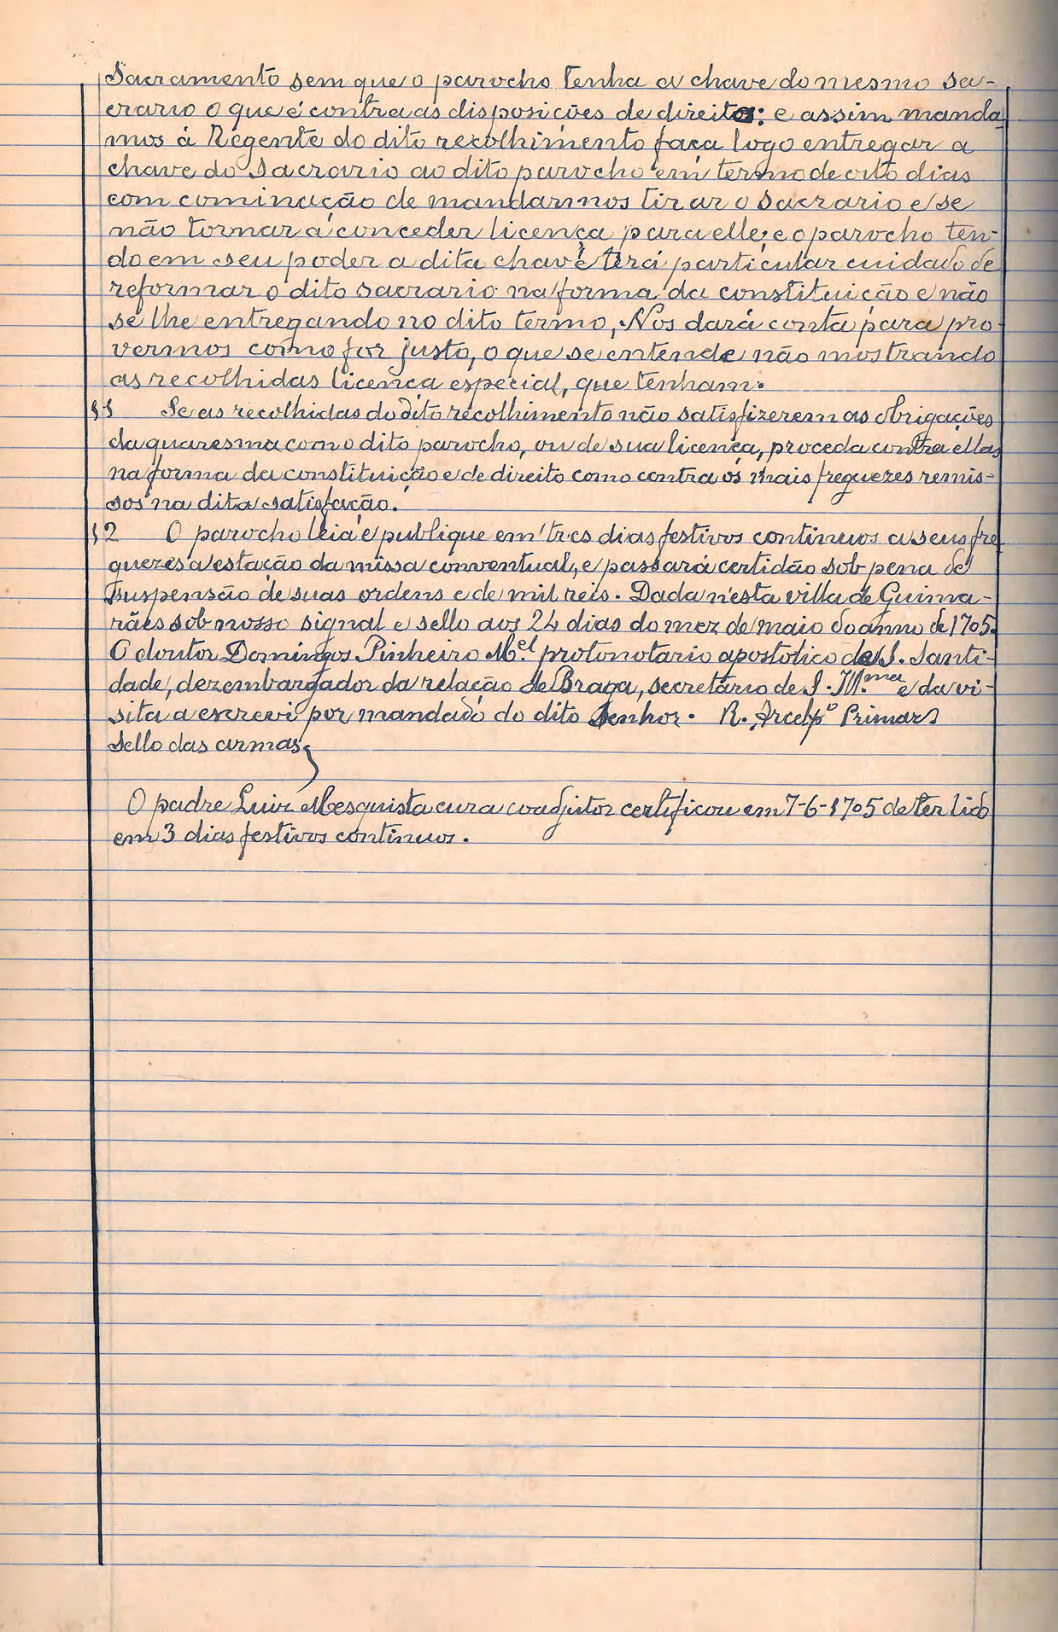 Sacramento sem que o parocho tenha a chave do mesmo sa-
crario o que é contra as disposições de direito: e assim manda-
mos á Regente do dito recolhimento faça logo entregar a
chave do Sacrario ao dito parocho em termo de oito dias
com cominação de mandarmos tirar o sacrario e se
não tornar a conceder licença para elle; e o parocho ten-
do em seu poder a dita chave terá particular cuidado de
reformar o dito sacrario na forma da constituição e não
se lhe entregando no dito termo, Nos dará conta para pro-
vermos como for justo, o que se entende não mostrando
as recolhidas licença especial, que tenham.
§1 Se as recolhidas do dito recolhimento não satisfizerem as obrigações
da quaresma com o dito parocho, ou de sua licença, proceda contra ellas
na forma da constituição e de direito como contra os mais freguezes remis-
sos na dita satisfação.
§2 O parocho leia e publique em tres dias festivos continuos a seus fre
guezes a estação da missa conventual, e passará certidão sob pena de
suspensão de suas ordens e de mil reis. Dada n'esta villa de Guima-
rães sob nosso signal e sello aos 24 dias do mez de maio do anno de 1705.
O doutor Domingos Pinheiro M.el protonotario apostolico de S. Santi-
dade, dezembargador da relação de Braga, secretario de S. Ill.ma e da vi-
sita a escrevi por mandado do dito Senhor. R. Arcebpo Primaz
Sello das armas
O padre Luiz Mesquista cura coadjutor certificou em 7-6-1705 de ter lido
em 3 dias festivos continuos.